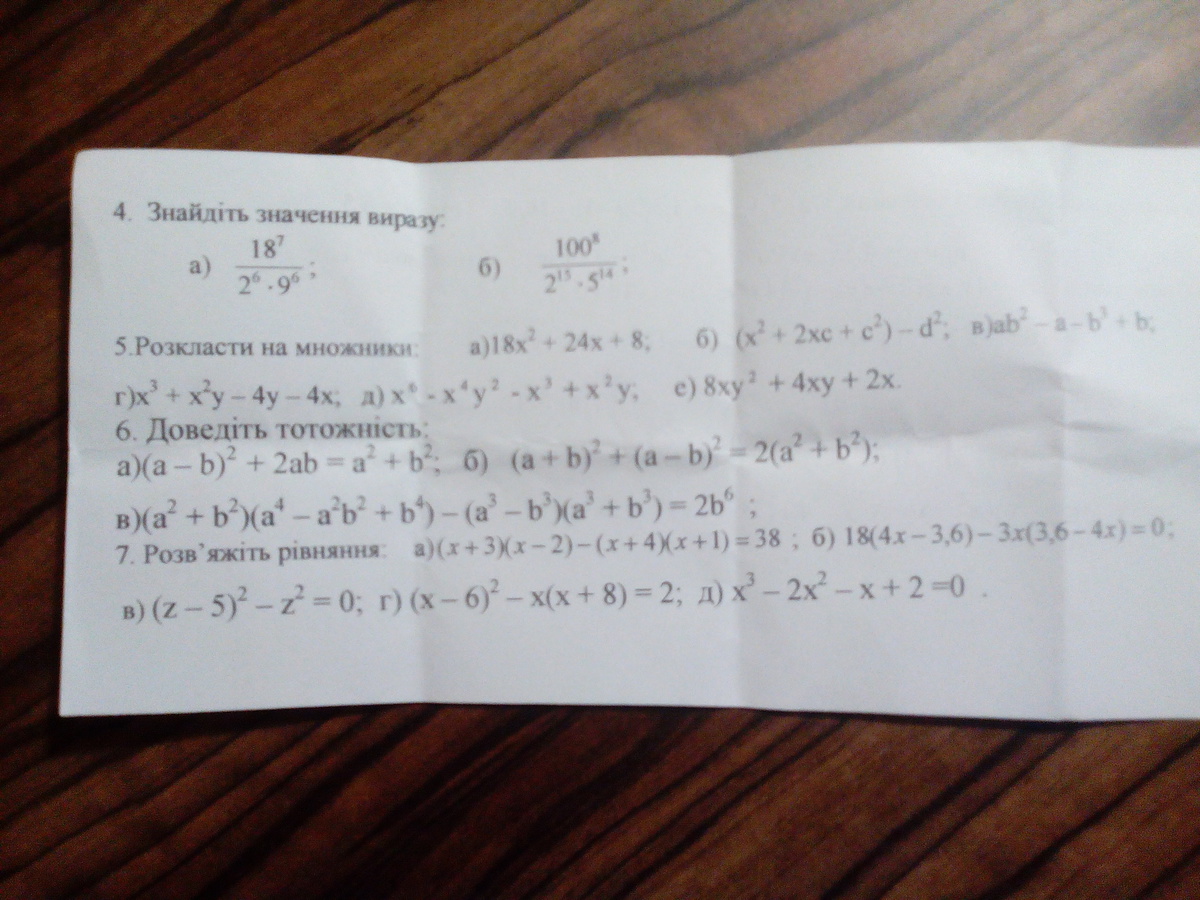 4. Знайдіть значення виразу:
а) 18⁷ / 2⁶ · 9⁶ ; б) 100⁸ / 2¹⁵ · 5¹⁴ ;
5.Розкласти на множники: а)18x² + 24x + 8; б) (x² + 2xc + c²) – d²; в)ab² – a – b³ + b;
г)x³ + x²y – 4y – 4x; д) x⁶ - x⁴y² - x³ + x²y; е) 8xy² + 4xy + 2x.
6. Доведіть тотожність:
а)(a – b)² + 2ab = a² + b²; б) (a + b)² + (a – b)² = 2(a² + b²);
в)(a² + b²)(a⁴ – a²b² + b⁴) – (a³ – b³)(a³ + b³) = 2b⁶ ;
7. Розв’яжіть рівняння: а)(x+3)(x–2)–(x+4)(x+1)=38 ; б) 18(4x–3,6)–3x(3,6–4x)=0;
в) (z – 5)² – z² = 0; г) (x – 6)² – x(x + 8) = 2; д) x³ – 2x² – x + 2 =0 .